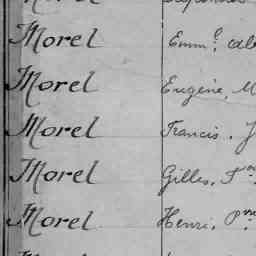 Morel
Morel Emm.l
Morel Eugène, M
Morel Francis. J
Morel Gilles.
Morel Henri,